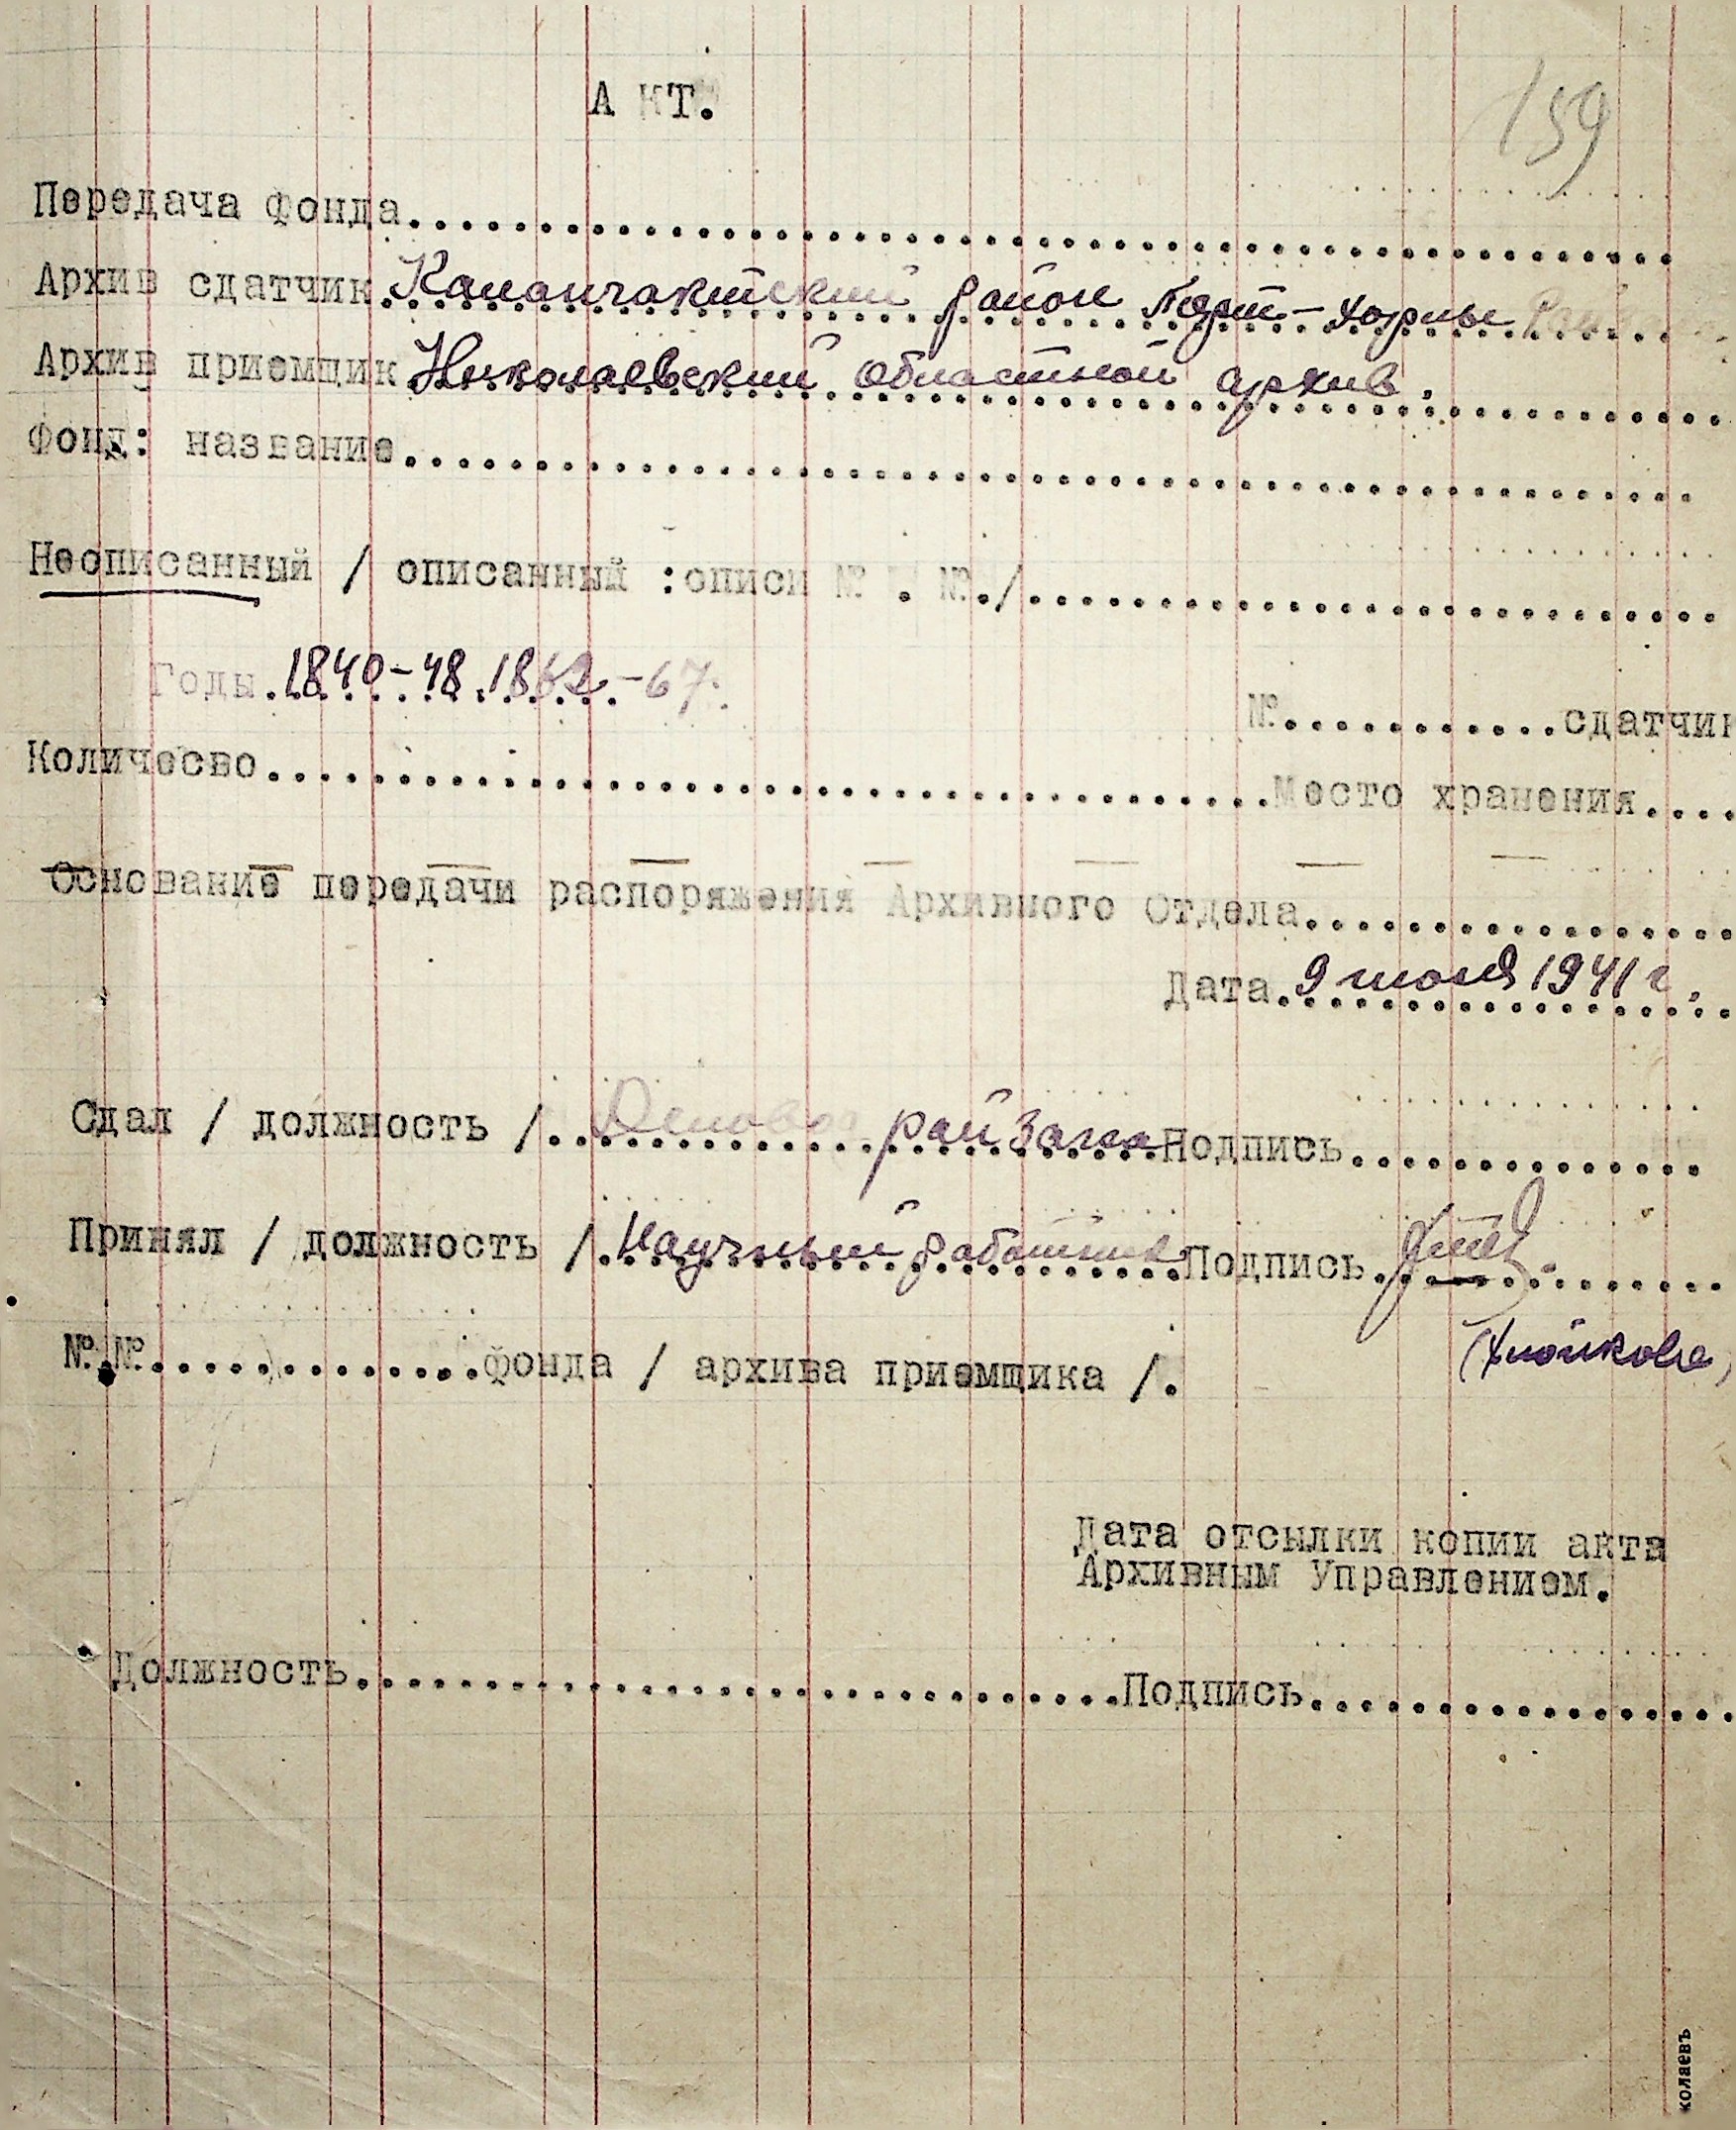 159
А КТ.
Передача фонда
Архив сдатчик Каланчакский район порт-Хорлы
Архив приемщик Николаевский областной архив.
Фонд: название
Неописанный / описанный :описи №. №./
Годы 1840-48 1862-67.
№ сдатчик
Количесво Место хранения
Основание передачи распоряжения Архивного Отдела
Дата 9 июня 1941 г.
Сдал / должность / рай Подпись
Принял / должность / Научный работник Подпись
№.№ фонда / архива приемщика /.
Дата отсылки копии акта
Архивным Управлением.
Должность Подпись
колаевъ